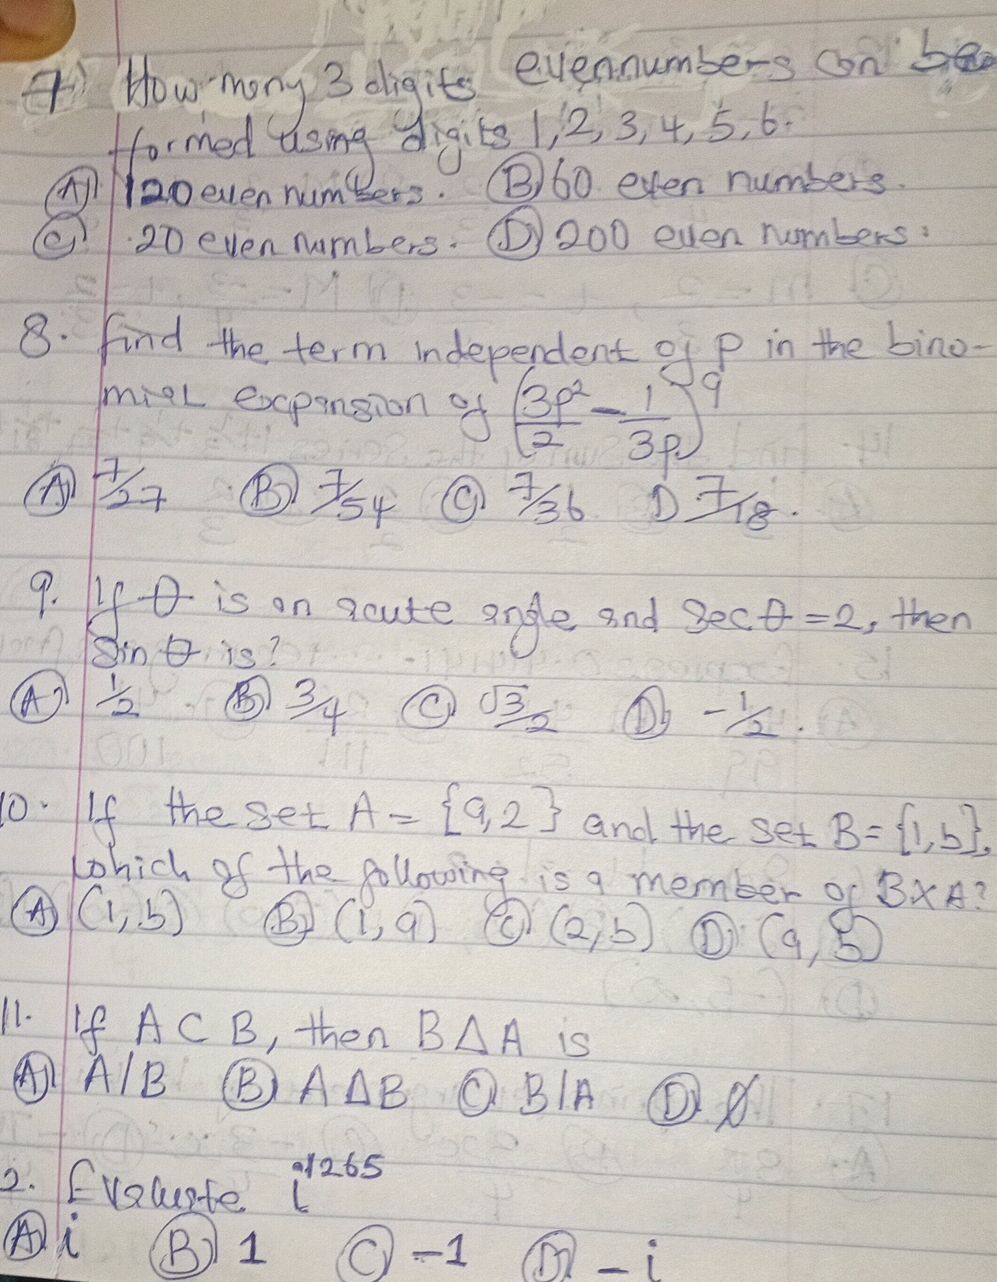 7) How many 3 digits even numbers can be
formed using digits 1, 2, 3, 4, 5, 6.
(A) 120 even numbers. (B) 60 even numbers.
(C) 20 even numbers. (D) 200 even numbers.
8. find the term independent of p in the bino-
mial expansion of (3p²/2 - 1/3p)⁹
(A) 7/27 (B) 7/54 (C) 7/36 D 7/18.
9. If θ is an acute angle and Sec θ = 2, then
Sin θ is?
(A) 1/2 (B) 3/4 (C) √3/2 (D) -1/2.
10. If the set A = {a,2} and the set B = {1,b},
which of the following is a member of B×A?
(A) (1,b) (B) (1,a) (C) (2,b) (D) (a,b)
11. If A ⊂ B, then B Δ A is
(A) A/B (B) A Δ B (C) B/A (D) ∅
2. Evaluate i¹²⁶⁵
(A) i (B) 1 (C) -1 (D) -i